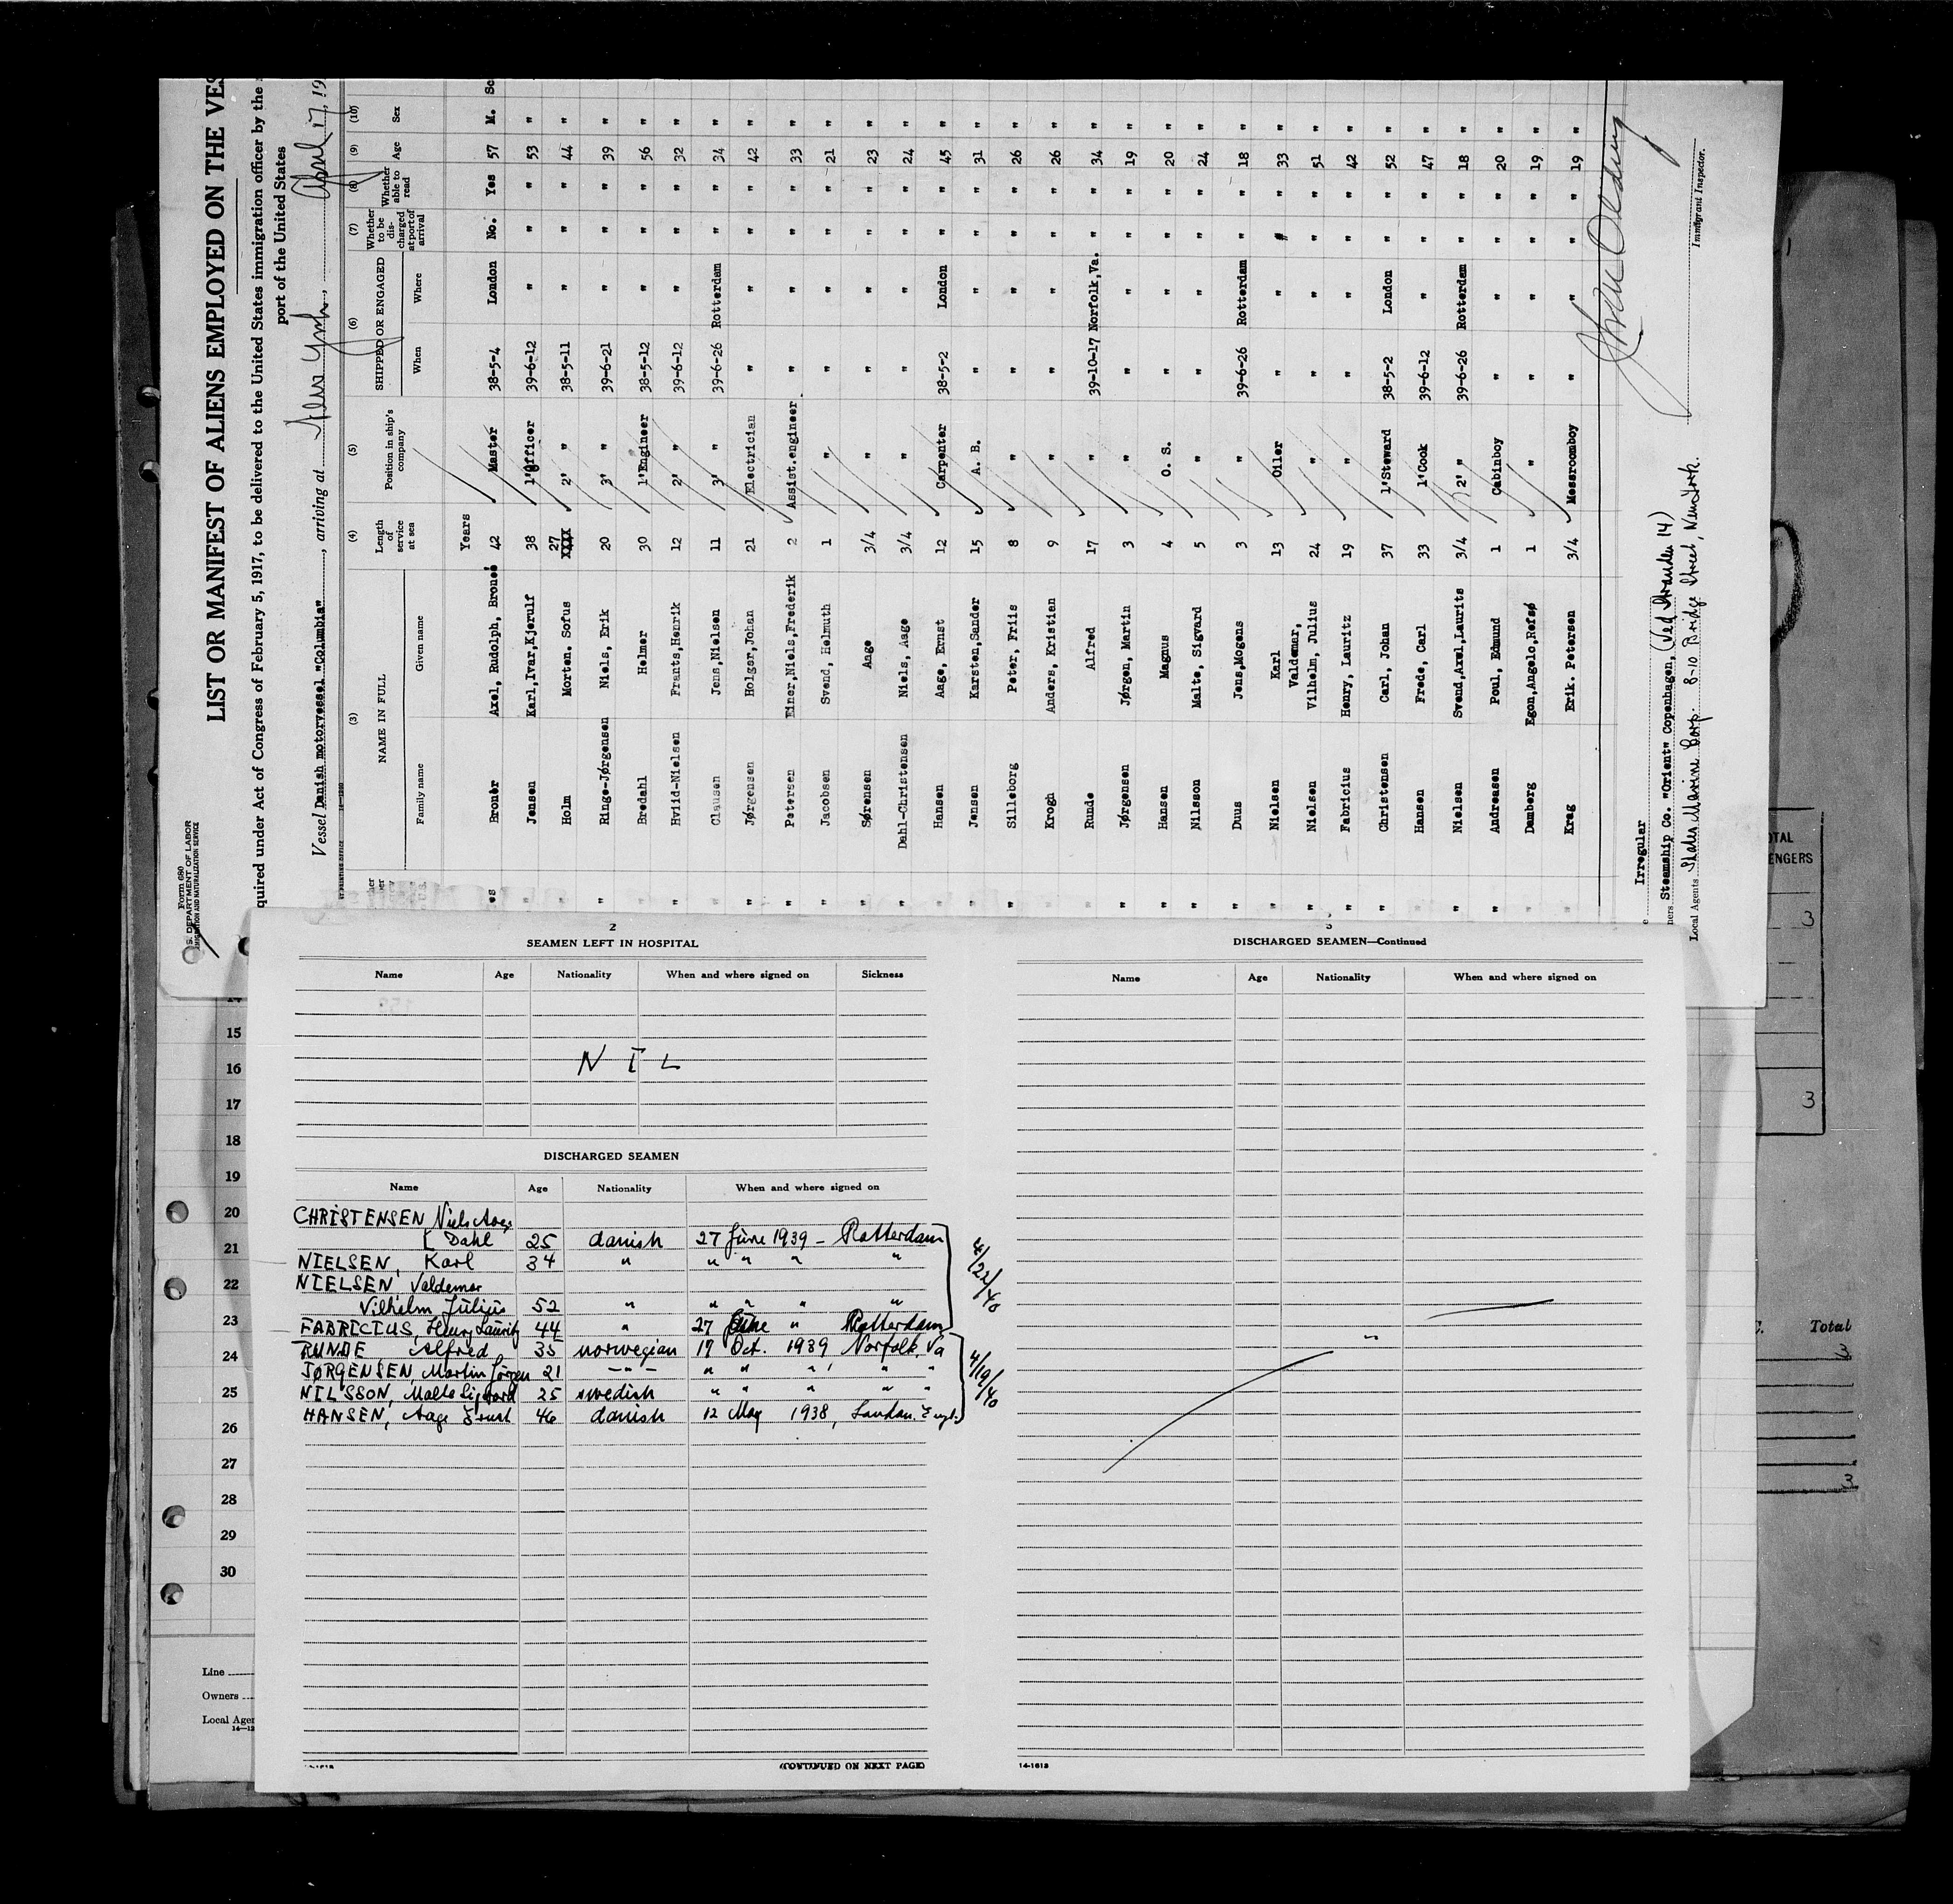 Form 680
U.S. DEPARTMENT OF LABOR
IMMIGRATION AND NATURALIZATION SERVICE
LIST OR MANIFEST OF ALIENS EMPLOYED ON THE VES
quired under Act of Congress of February 5, 1917, to be delivered to the United States immigration officer by the
port of the United States
Vessel Danish motorvessel "Columbia", arriving at New York, April 17, 19
(3) (4) (5) (6) (7) (8) (9) (10)
NAME IN FULL Length of service at sea Position in ship's company SHIPPED OR ENGAGED Whether to be discharged at port of arrival Whether able to read Age Sex
Family name Given name When Where
Years
es Bronér Axel, Rudolph, Broneé 42 Master 38-5-4 London No. Yes 57 M. Sc
" Jensen Karl,Ivar,Kjerulf 38 1'Officer 39-6-12 " " " 53 "
" Holm Morten. Sofus 27 xxxx 2' " 38-5-11 " " " 44 "
" Ringe-Jørgensen Niels, Erik 20 3' " 39-6-21 " " " 39 "
" Bredahl Helmer 30 1'Engineer 38-5-12 " " " 56 "
" Hviid-Nielsen Frants,Henrik 12 2' " 39-6-12 " " " 32 "
" Clausen Jens,Nielsen 11 3' " 39-6-26 Rotterdam " " 34 "
" Jørgensen Holger,Johan 21 Electrician " " " " 42 "
" Petersen Einer,Niels,Frederik 2 Assist.engineer. " " " " 33 "
" Jacobsen Svend, Helmuth 1 " " " " " 21 "
" Sørensen Aage 3/4 " " " " " 23 "
" Dahl-Christensen Niels, Aage 3/4 " " " " " 24 "
" Hansen Aage, Ernst 12 Carpenter 38-5-2 London " " 45 "
" Jensen Karsten,Sander 15 A. B. " " " " 31 "
" Silleborg Peter, Friis 8 " " " " " 26 "
Krogh Anders, Kristian 9 " " " " " 26 "
Runde Alfred 17 " 39-10-17 Norfolk,Va. " " 34 "
" Jørgensen Jørgen, Martin 3 " " " " " 19 "
" Hansen Magnus 4 O. S. " " " " 20 "
" Nilsson Malte, Sigvard 5 " " " " " 24 "
" Duus Jens,Mogens 3 " 39-6-26 Rotterdam " " 18 "
" Nielsen Karl 13 Oiler " " " " 33 "
" Nielsen Valdemar, Vilhelm, Julius 24 " " " " " 51 "
" Fabricius Henry, Lauritz 19 " " " " " 42 "
" Christensen Carl, Johan 37 1'Steward 38-5-2 London " " 52 "
Hansen Frede, Carl 33 1'Cook 39-6-12 " " " 47 "
" Nielsen Svend,Axel,Laurits 3/4 2' " 39-6-26 Rotterdam " " 18 "
" Andreasen Poul, Edmund 1 Cabinboy " " " " 20 "
" Damberg Egon,Angelo,Refsø 1 " " " " " 19 "
" Krag Erik. Petersen 3/4 Messroomboy " " " " 19 "
Irregular
ners Steamship Co. "Orient" Copenhagen, (Ved Stranden 14)
Local Agents States Marine Corp. 8-10 Bridge Street, New York.
Immigrant Inspector.
2
SEAMEN LEFT IN HOSPITAL
Name Age Nationality When and where signed on Sickness
NIL
DISCHARGED SEAMEN
Name Age Nationality When and where signed on
CHRISTENSEN Niels Aage
Dahl 25 danish 27 June 1939 - Rotterdam
NIELSEN, Karl 34 " " " " "
NIELSEN, Valdemar
Vilhelm Julius 52 " " " " "
FABRICIUS, Henry Lauritz 44 " 27 June " Rotterdam
4/22/40
RUNDE, Alfred 35 norwegian 17 Oct. 1939 Norfolk, Va
JØRGENSEN, Martin Jörgen 21 -"- " " " " "
NILSSON, Malte Sigvard 25 swedish " " " " "
HANSEN, Aage Ernst 46 danish 12 May 1938, London. Engl.
4/19/40
(CONTINUED ON NEXT PAGE)
3
DISCHARGED SEAMEN—Continued
Name Age Nationality When and where signed on
14-1613
14
15
16
17
18
19
20
21
22
23
24
25
26
27
28
29
30
Line
Owners
Local Agen
14—12
OTAL
ENGERS
3
3
Total
3
3